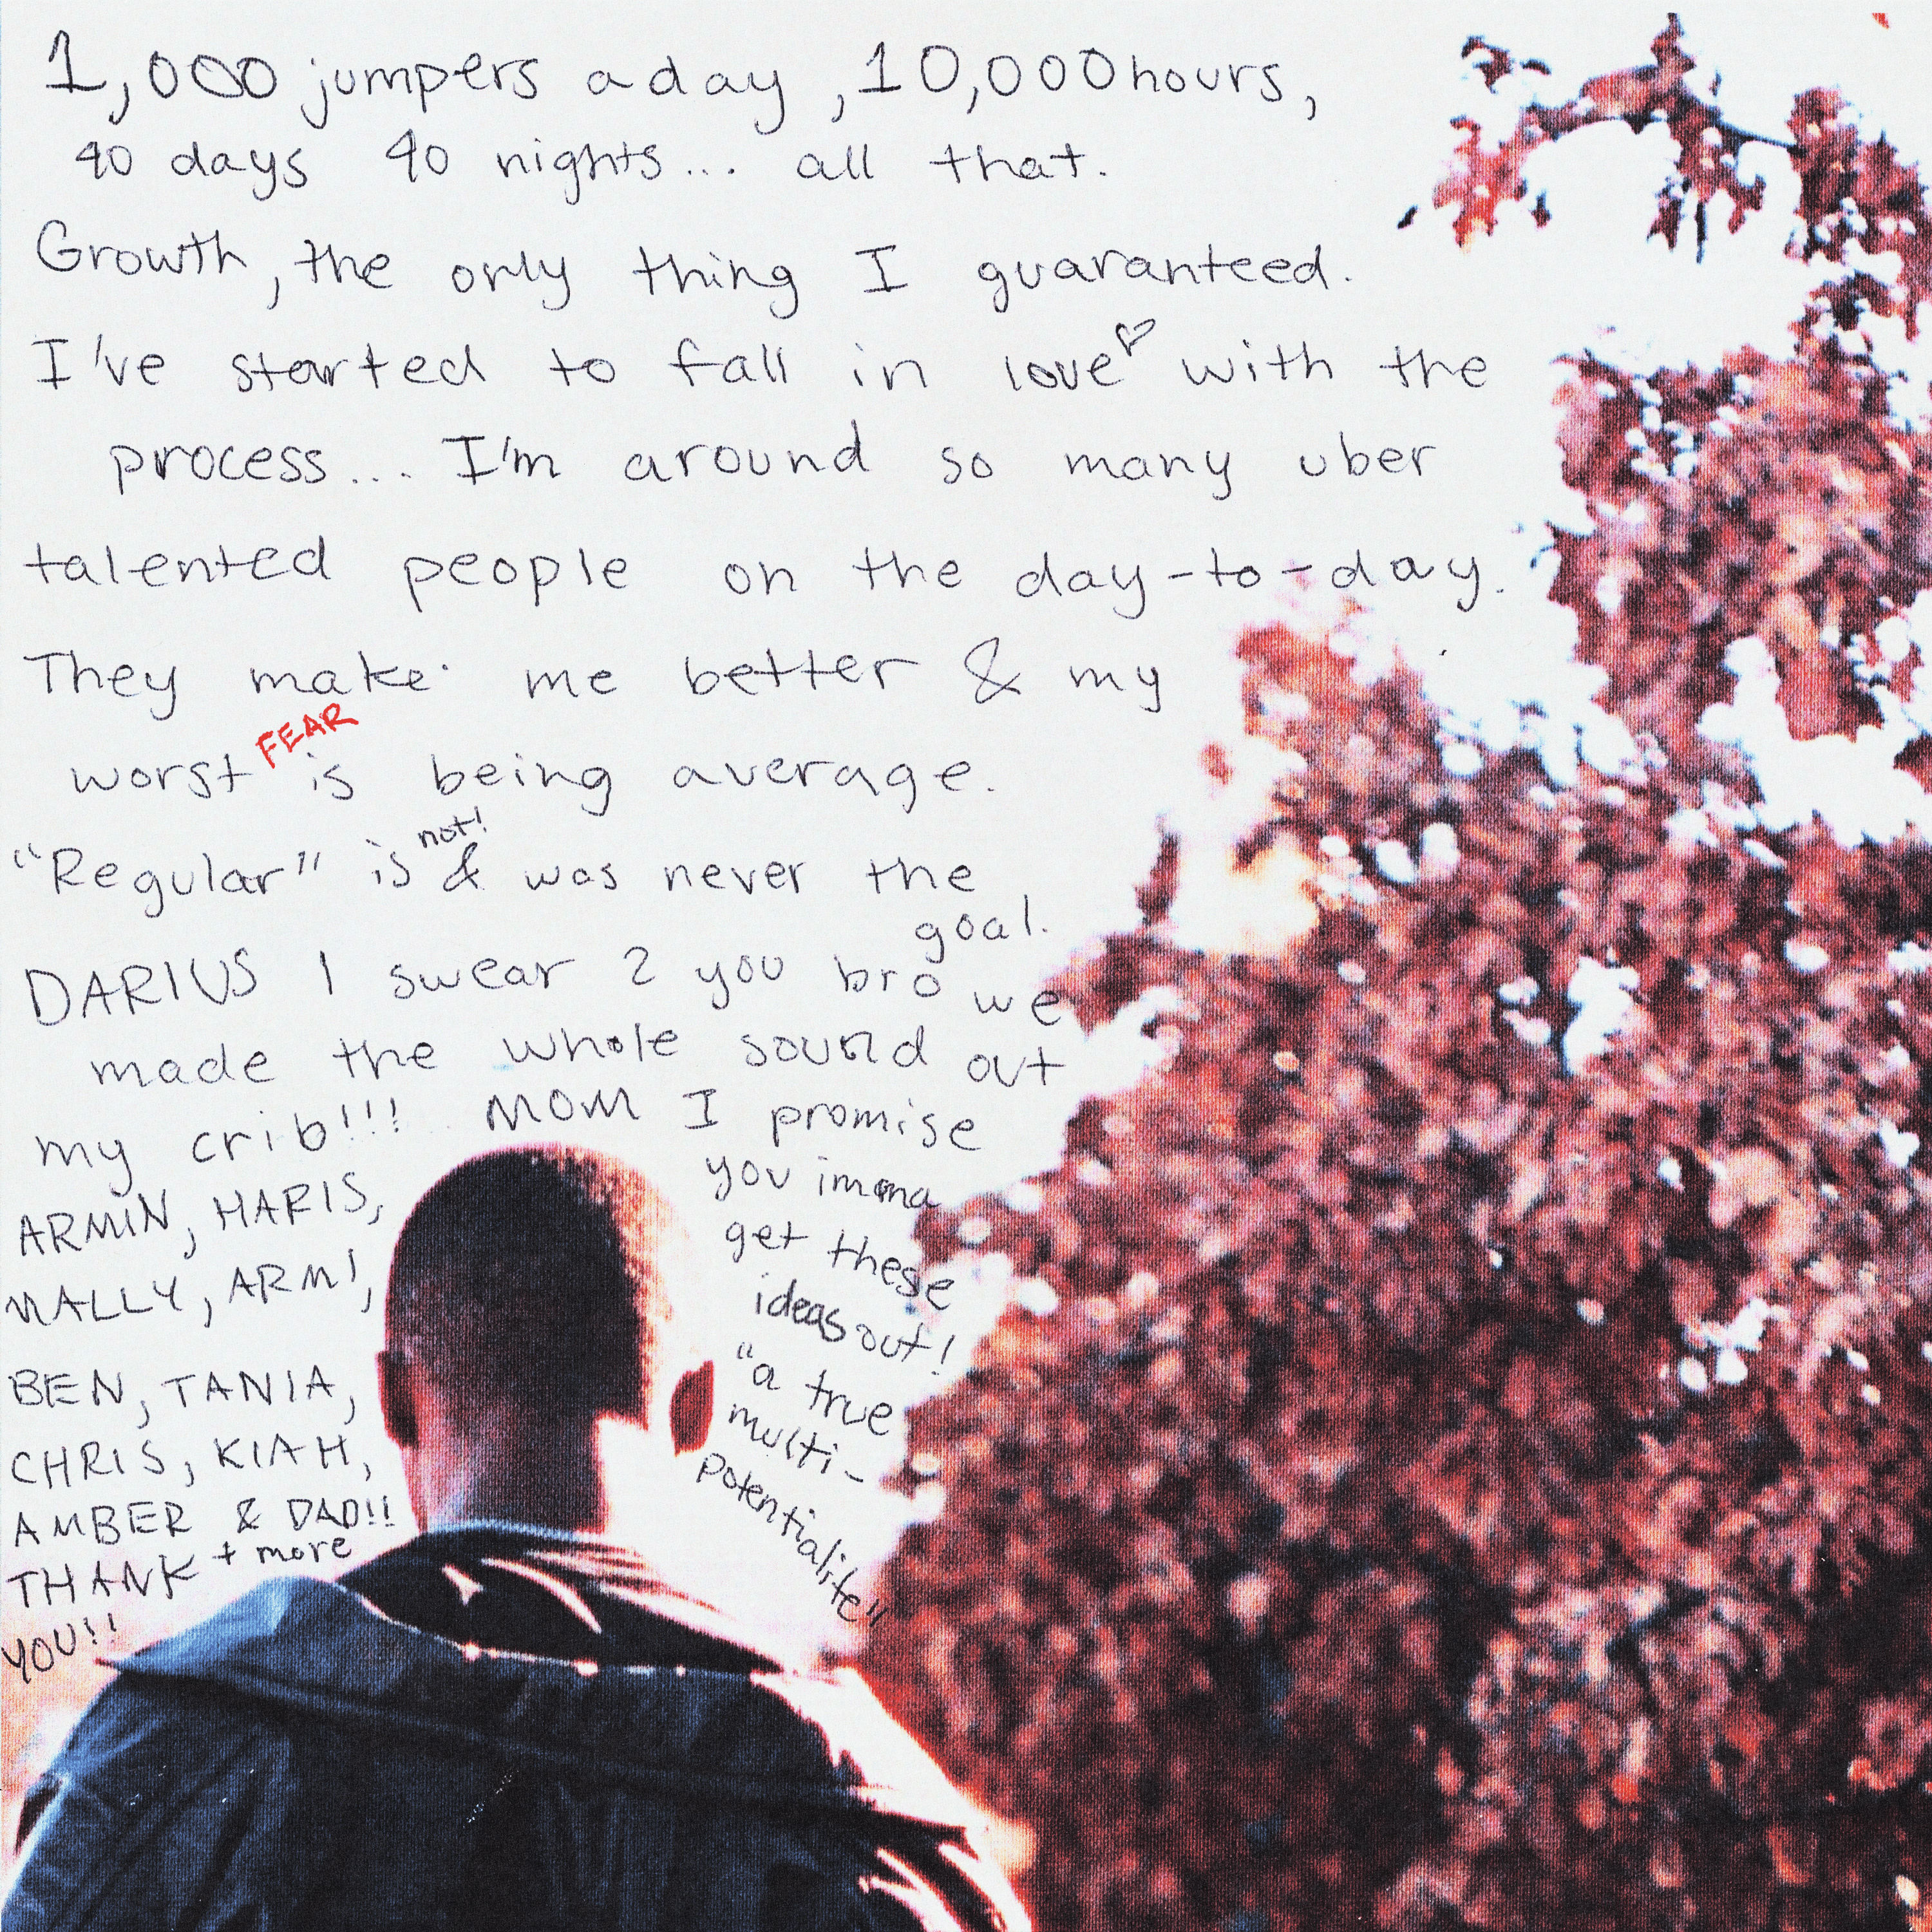 1,000 jumpers a day, 10,000 hours,
40 days 40 nights... all that.
Growth, the only thing I guaranteed.
I've started to fall in love♡ with the
process... I'm around so many uber
talented people on the day-to-day.
They make me better & my
worst FEAR is being average.
"Regular" is not! & was never the
goal.
DARIUS I swear 2 you bro we
made the whole sound out
my crib!!! MOM I promise
you imma
get these
ideas out!
"a true
multi-
potentialite"
ARMIN, HARIS,
MALLY, ARMI,
BEN, TANIA,
CHRIS, KIAH,
AMBER & DAD!!
+ more
THANK
YOU!!